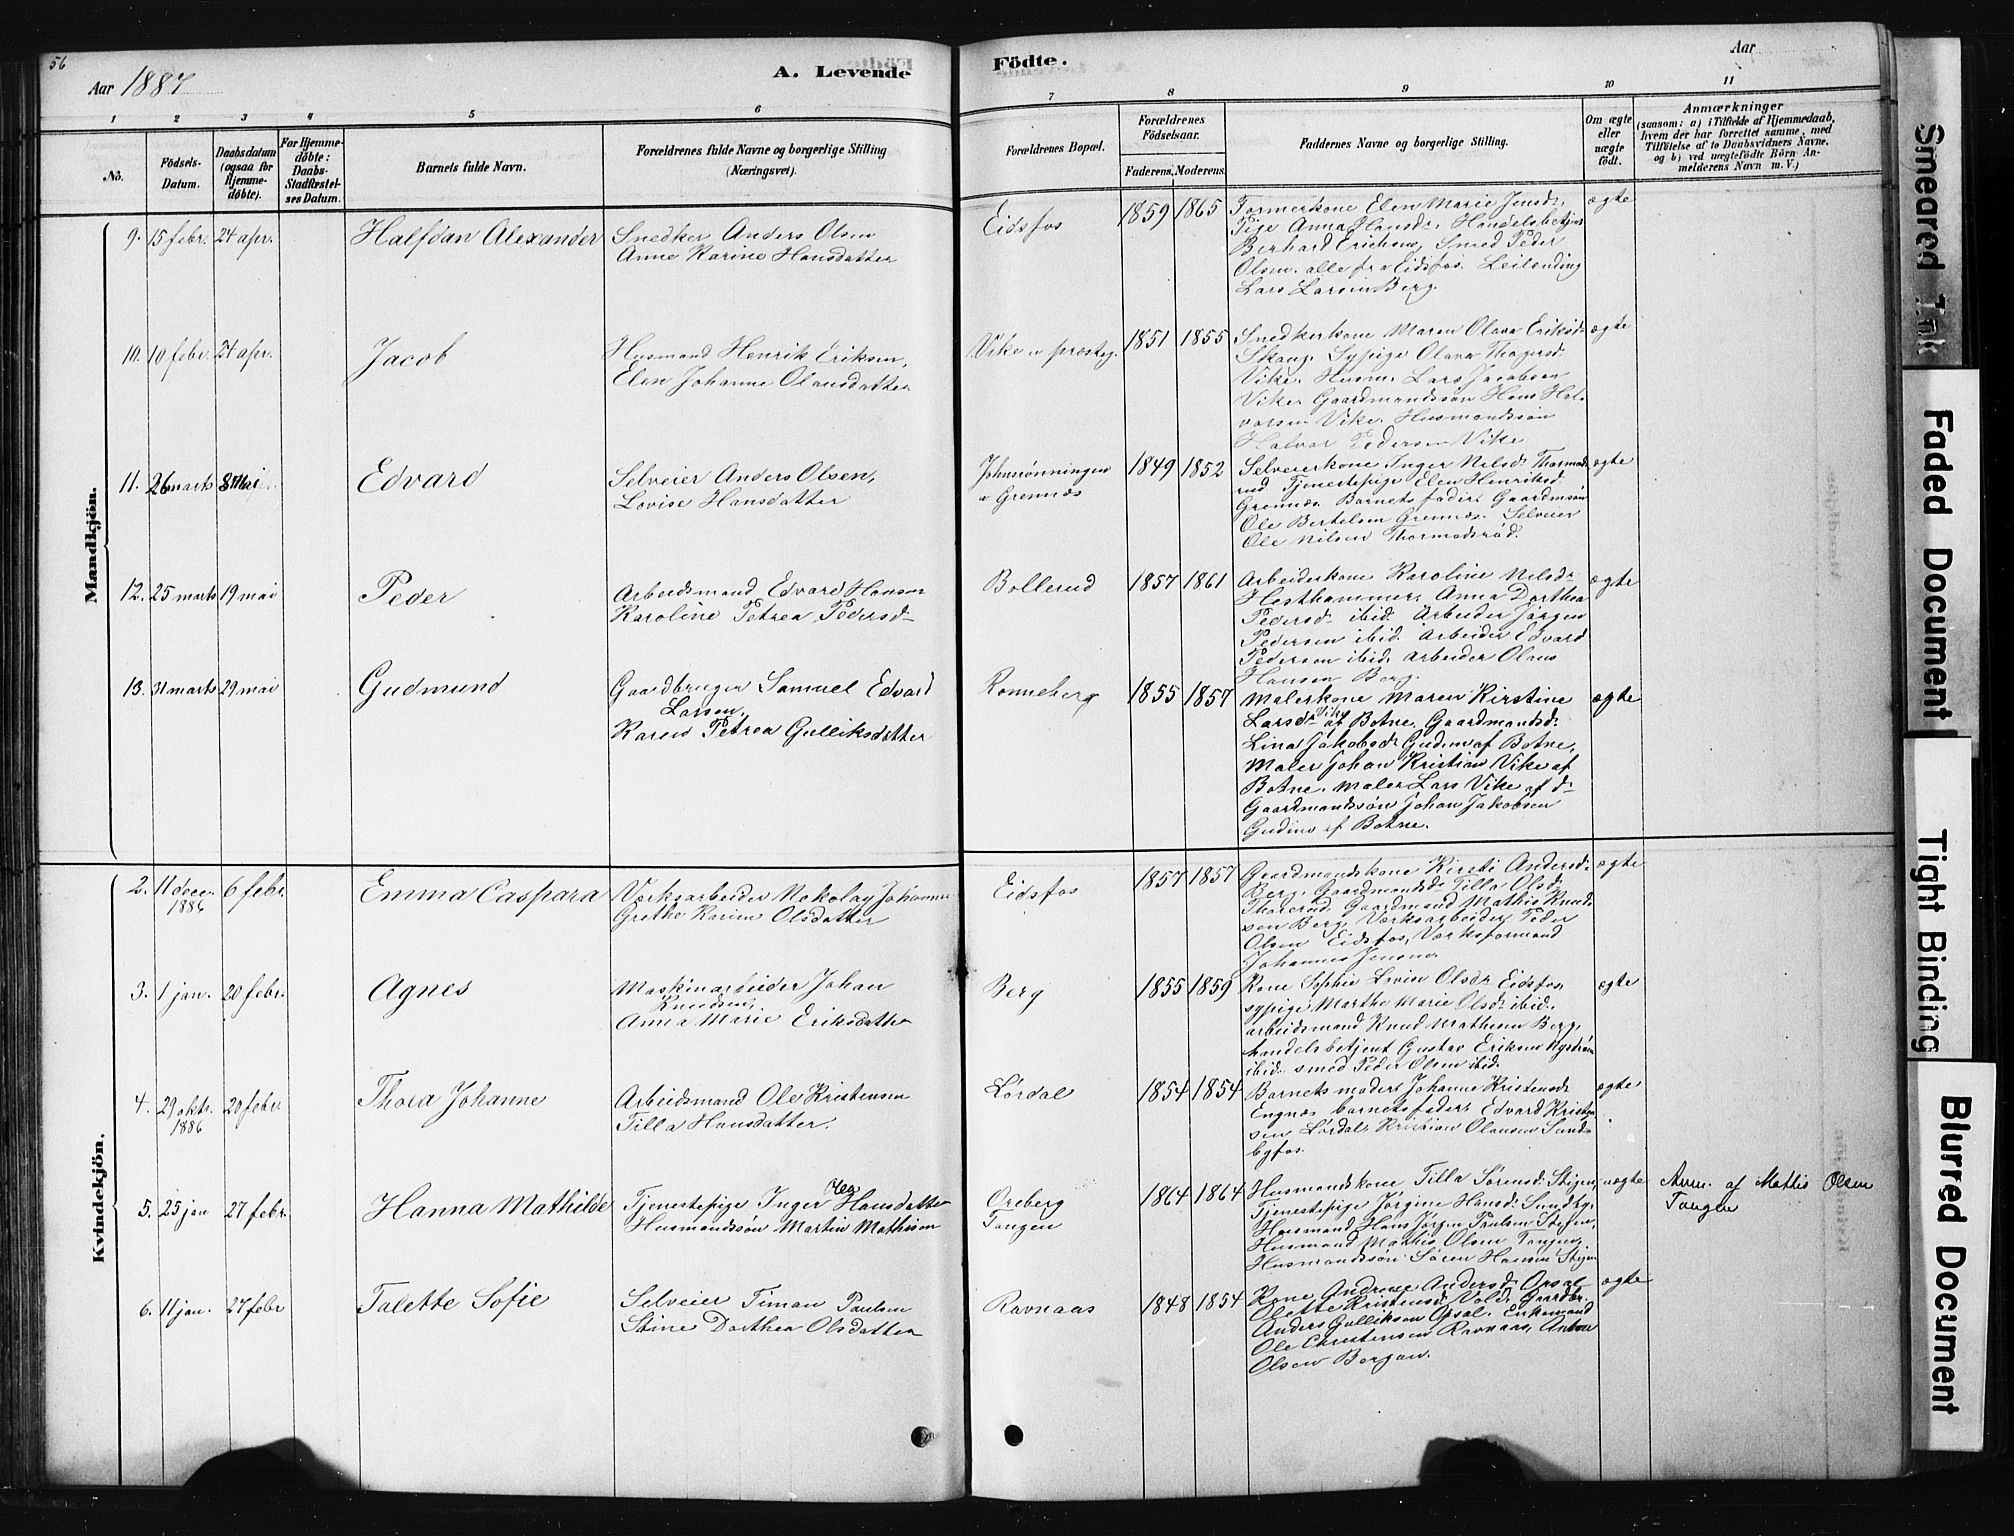 56
Aar 1887
A. Levende
Födte.
Aar
1 2 3 4 5 6 7 8 9 10 11
No.
Födsels-Datum.
Daabsdatum (ogsaa for Hjemme-döbte).
For Hjemme-döbte: Daabs-Stadfæstel-ses Datum.
Barnets fulde Navn.
Forældrenes fulde Navne og borgerlige Stilling (Næringsvei).
Forældrenes Bopæl.
Forældrenes Födselsaar.
Faderens. Moderens.
Faddernes Navne og borgerlige Stilling.
Om ægte eller uægte födt.
Anmærkninger
(saasom: a) i Tilfælde af Hjemmedaab,
hvem der har forrettet samme, med
Tilföielse af to Daabsvidners Navne,
og b) ved uægtefödte Börn An-
melderens Navn m. V.)
Mandkjön.
9. 15 febr. 24 apr. Halfdan Alexander
Snedker Anders Olsen
Anne Karine Hansdatter
Eidsfos 1859 1865
Formerkone Elen Marie Jensdr,
Pige Anna Hansdr. Handelsbetjent
Berhard Erichsen, Smed Peder
Olsen. alle fra Eidsfos. Leilending
Lars Larsen Berg.
ægte
10. 10 febr. 24 apr. Jacob
Husmand Henrik Eriksen,
Elen Johanne Olausdatter
Vike u præsteg. 1851 1855
Snedkerkone Maren Olava Eriksdr
Skaug. Sypige Olava Thagersd.
Vike. Husm. Lars Jacobsen
Vike. Gaardmandssøn Hans Hal-
vorsen Vike. Husmandssøn
Halvor Pedersen Vike
ægte
11. 26 marts 8 Mai Edvard
Selveier Anders Olsen,
Lovise Hansdatter
Johnsrønningen
u Grennæs
1849 1852
Selveierkone Inger Nilsdr Thormods-
rud Tjenestepige Elen Henriksd.
Grennæs. Barnets fader. Gaardmsøn
Ole Bertelsen Grennæs. Selveier
Ole Nilsen Thormodsrød.
ægte
12. 25 marts 19 mai Peder
Arbeidsmand Edvard Hansen
Karoline Petrea Pedersd-
Bollerud 1857 1861
Arbeiderkone Karoline Nilsdr
Hesthammer, Anna Dorthea
Pedersdr ibid. Arbeider Jørgen
Pedersen ibid. Arbeider Edvard
Pedersen ibid. Arbeider Olaus
Hansen Berg.
ægte
13. 31 marts 29 mai Gudmund
Gaardbruger Samuel Edvard
Larsen,
Karen Petrea Gulliksdatter
Ronneberg 1855 1857
Malerkone Maren Kirstine
Larsdr Vike af Botne. Gaardmandsd.
Lina Jakobsdr Gudem af Botne,
Maler Johan Kristian Vike af
Botne. Maler Lars Vike af dr
Gaardmandssøn Johan Jakobsen
af Botne.
ægte
Kvindekjön.
2. 11 dece. 1886 6 febr. Emma Caspara
Værksarbeider Nokolay Johannsen
Grethe Karine Olsdatter
Eidsfos 1857 1857
Gaardmandskone Kirsti Andersd.
Berg. Gaardmandsdr Tilla Olsdr
Thorerud. Gaardmand Mathis Knud-
sen Berg. Værksarbeider Peder
Olsen Eidsfos, Værksformand
Johannes Jensen.
ægte
3. 1 jan. 20 febr. Agnes
Maskinarbeider Johan
Knudsen,
Anna Marie Eriksdatter
Berg 1855 1859
Kone Sophie Lovise Olsdr Eidsfos,
sypige Marthe Marie Olsdr ibid.
arbeidsmand Knud Mathesen Berg,
handelsbetjent Gustav Eriksen Nystrøm
ibid. smed Peder Olsen ibid.
ægte
4. 29 okts. 1886 20 febr. Thora Johanne
Arbeidsmand Ole Kristensen
Tilla Hansdatter.
Lørdal 1854 1854
Barnets moder, Johanne Kristensdr
Engnæs barnets fader, Edvard Kristen
sen Lørdal, Kristian Olausen Sund-
byfos.
ægte
5. 25 jan 27 febr. Hanna Mathilde
Tjenestepige Inger Olea Hansdatter
Husmandssøn Martin Mathisen
Oreberg
Tangen
1864 1864
Husmandskone Tilla Sørensd. Stigen,
Tjenestepige Jørgine Hansdr Sundby,
Husmand Hans Jørgen Paulsen Stigen,
Husmand Mathis Olsen Tangen,
Husmandssøn Søren Hansen Stigen
uægte
Anm. af Mathis Olsen
Tangen
6. 11 jan. 27 febr Talette Sofie
Selveier Timan Paulsen
Stine Dorthea Olsdatter
Ravnaas 1848 1854
Kone Andrene Andersdr Orsal
Olette Kristensd. Vold. Gaardbr.
Anders Gulliksen Orsal. Enkemand
Ole Christensen Ravnaas, Anton
Olsen Bergan.
ægte
Smeared Ink
Faded Document
Tight Binding
Blurred Document